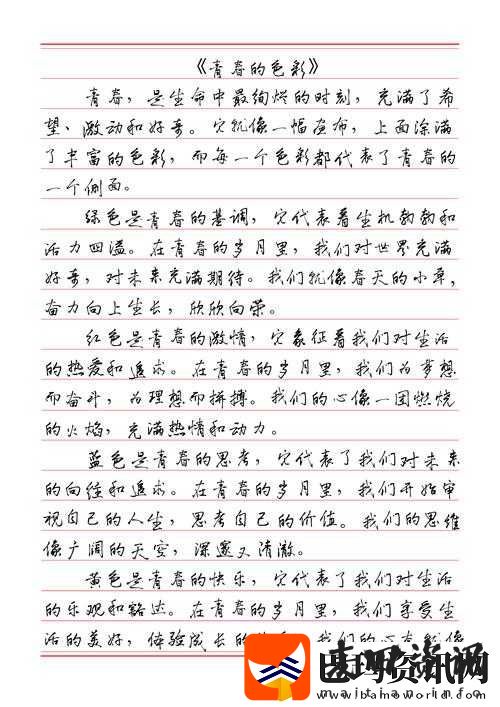 《青春的色彩》
青春，是生命中最绚烂的时刻，充满了希
望、激动和好奇。它就像一幅画布，上面涂满
了丰富的色彩，而每一个色彩都代表了青春的
一个侧面。
绿色是青春的基调，它代表着生机勃勃和
活力四溢。在青春的岁月里，我们对世界充满
好奇，对未来充满期待。我们就像春天的小草，
奋力向上生长，欣欣向荣。
红色是青春的激情，它象征着我们对生活
的热爱和追求。在青春的岁月里，我们为梦想
而奋斗，为理想而拼搏。我们的心像一团燃烧
的火焰，充满热情和动力。
蓝色是青春的思考，它代表了我们对未来
的向往和追求。在青春的岁月里，我们开始审
视自己的人生，思考自己的价值。我们的思维
像广阔的天空，深邃又清澈。
黄色是青春的快乐，它代表了我们对生活
的乐观和豁达。在青春的岁月里，我们享受生
活的美好，体验成长的 我们的心态就像
医玛资讯网
www.ibamaworld.com